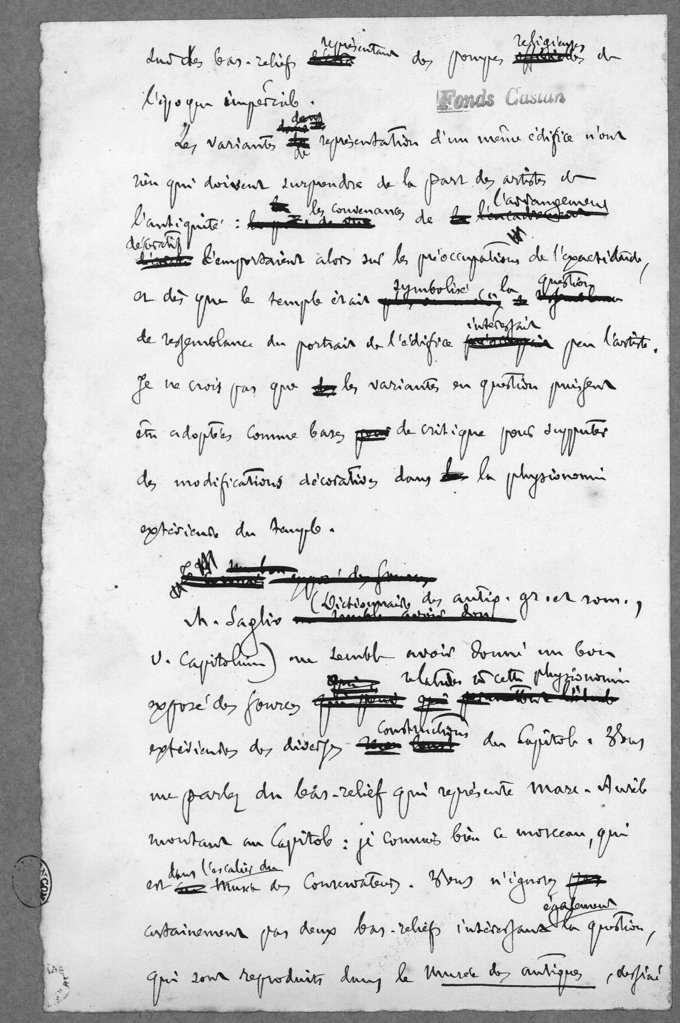 sur des bas-reliefs représentant des pompes religieuses de
l'époque impériale.
Fonds Castan
Les variantes dans la représentation d'un même édifice n'ont
rien qui doivent surprendre de la part des artistes de
l'antiquité : les convenances de l'arrangement
décoratif l'emportaient alors sur les préoccupations de l'exactitude,
et dès que le temple était symbolisé la question
de ressemblance du portrait de l'édifice intéressait peu l'artiste.
Je ne crois pas que les variantes en question puissent
être adoptées comme bases de critique pour supputer
des modifications décoratives dans la physionomie
extérieure du temple.
M. Saglio (Dictionnaire des antiq. gr. et rom.,
v. Capitolium) me semble avoir donné un bon
exposé des sources relatives à cette physionomie
extérieure des diverses constructions du Capitole. Vous
me parlez du bas-relief qui représente Marc-Aurèle
montant au Capitole : je connais bien ce morceau, qui
est dans l'escalier du Musée des Conservateurs. Vous n'ignorez
certainement pas deux bas-reliefs intéressant également la question,
qui sont reproduits dans le Musée des antiques, dessiné